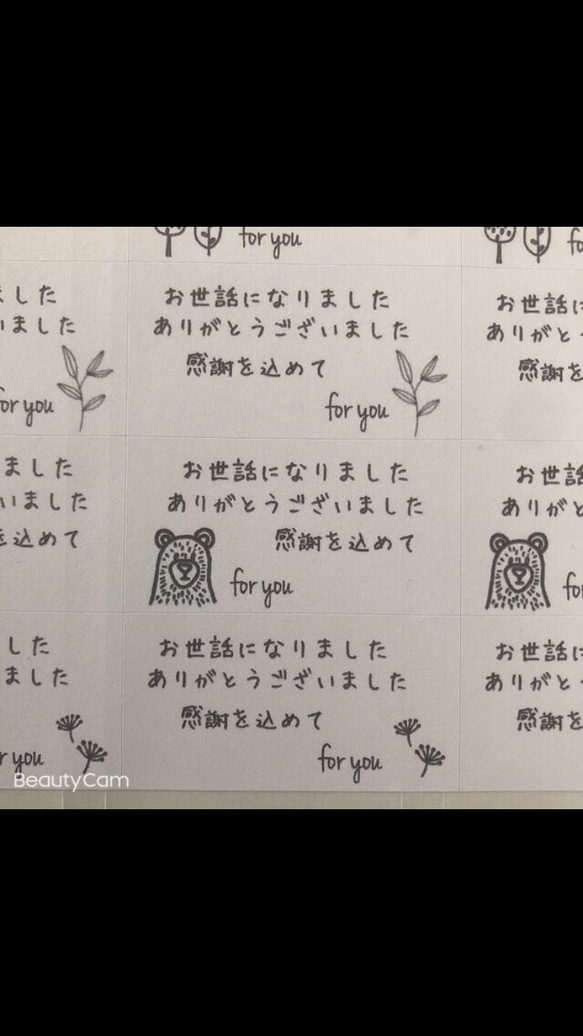 for you
fo
ました
いました
for you
お世話になりました
ありがとうございました
感謝を込めて
for you
お世話に
ありがと
感謝を
ました
いました
を込めて
お世話になりました
ありがとうございました
感謝を込めて
for you
お世話
ありがと
感謝を込
fo
した
ました
r you
お世話になりました
ありがとうございました
感謝を込めて
for you
お世話に
ありがと
感謝を
BeautyCam